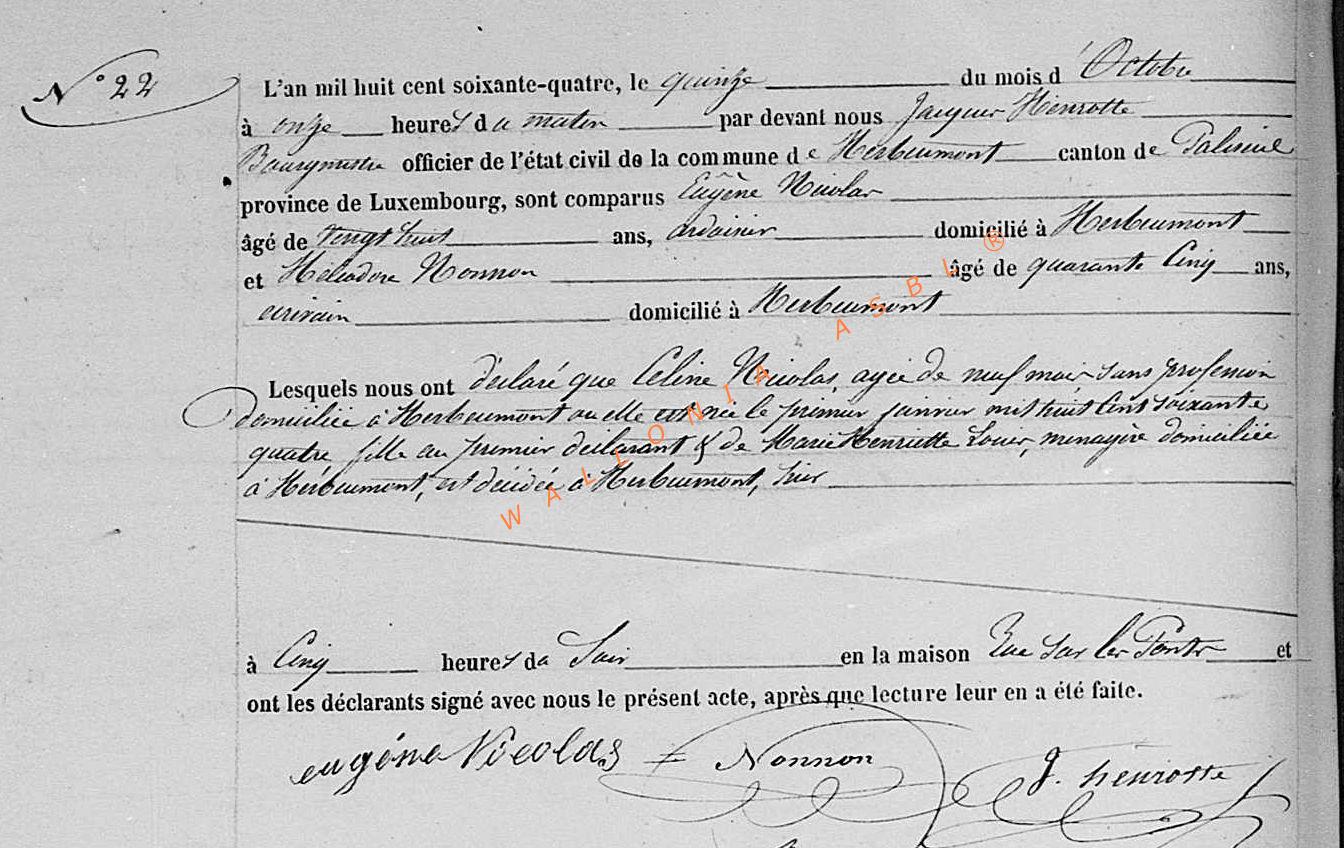 N° 22
L'an mil huit cent soixante-quatre, le quinze du mois d'Octobre
à onze heures du matin par devant nous Jacques Henrotte
Bourgmestre officier de l'état civil de la commune de Herbeumont canton de Paliseul
province de Luxembourg, sont comparus Eugène Nicolas
âgé de vingt huit ans, ardoisier domicilié à Herbeumont
et Héliodore Nonnon âgé de quarante Cinq ans,
écrivain domicilié à Herbeumont
Lesquels nous ont déclaré que Céline Nicolas, agée de neuf mois sans profession
domiciliée à Herbeumont ou elle est née le premier janvier mil huit Cent soixante
quatre fille au premier déclarant & de Marie Henriette Louis, menagère domiciliée
à Herbeumont, est décédée à Herbeumont, hier
à Cinq heures du Soir en la maison Rue Sur les Ponts et
ont les déclarants signé avec nous le présent acte, après que lecture leur en a été faite.
eugène Nicolas Nonnon J. henrotte
WALLONIA ASBL ®